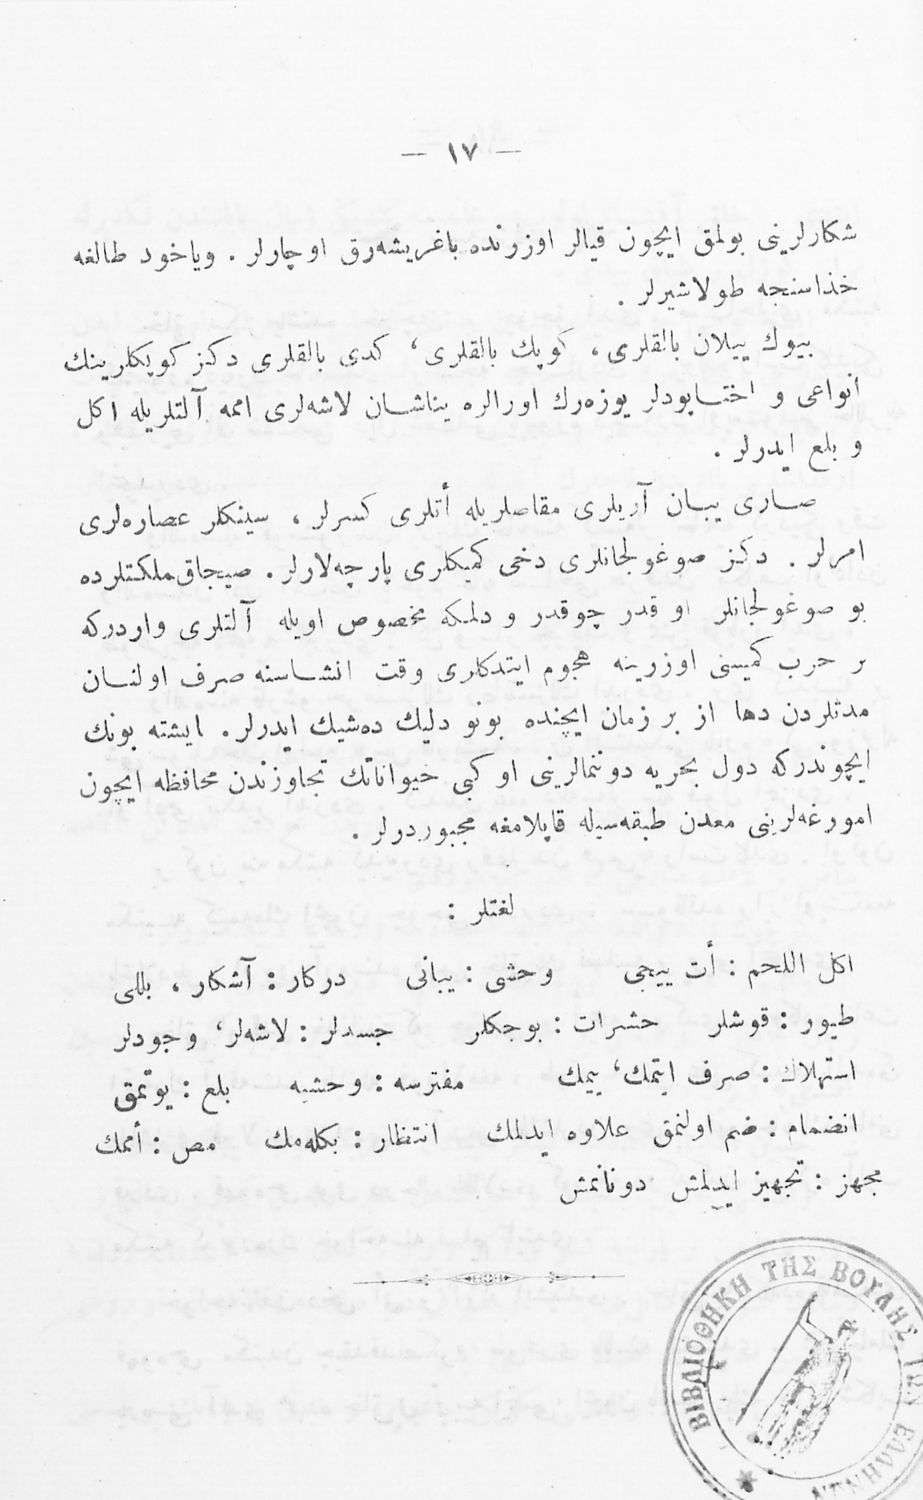 — ١٧ —
شكارلرینی بولمق ایچون قیالر اوزرنده باغریشەرق اوچارلر . ویاخود طالغه
خذاسنجه طولاشیرلر .
بیوك ییلان بالقلری ، كوپك بالقلری ، كدی بالقلری دكز كوپكلرینك
أنواعی و اختاپودلر یوزەرك اورالره یناشان لاشەلری اممه آلتلریله اكل
و بلع ایدرلر .
صاری یبان آریلری مقاصلریله أتلری كسرلر ، سینكلر عصارەلری
امرلر . دكز صوغولجانلری دخی كمیكلری پارچەلارلر . صیجاق مملكتلرده
بو صوغولجانلر او قدر چوقدر و دلمكه مخصوص اویله آلتلری واردركه
بر حرب كمیسی اوزرینه هجوم ایتدكلری وقت انشاسنه صرف اولنان
مدتلردن دها از بر زمان ایچنده بونو دلیك دەشیك ایدرلر . ایشته بونك
ایچوندركه دول بحریه دوننمالرینی او كبی حیواناتك تجاوزندن محافظه ایچون
امورغەلرینی معدن طبقەسیله قاپلامغه مجبوردرلر .
لغتلر :
اكل اللحم : أت ییجی وحشی : یبانی دركار : آشكار ، بللی
طیور : قوشلر حشرات : بوجكلر جسدلر : لاشەلر ، وجودلر
استهلاك : صرف ایتمك ، ییمك مفترسه : وحشیه بلع : یوتمق
انضمام : ضم اولنمق علاوه ایدلمك انتظار : بكلەمك مص : أممك
مجهز : تجهیز ایدلمش دونانمش
ΒΙΒΛΙΟΘΗΚΗ ΤΗΣ ΒΟΥΛΗΣ ΤΩΝ ΕΛΛΗΝΩΝ